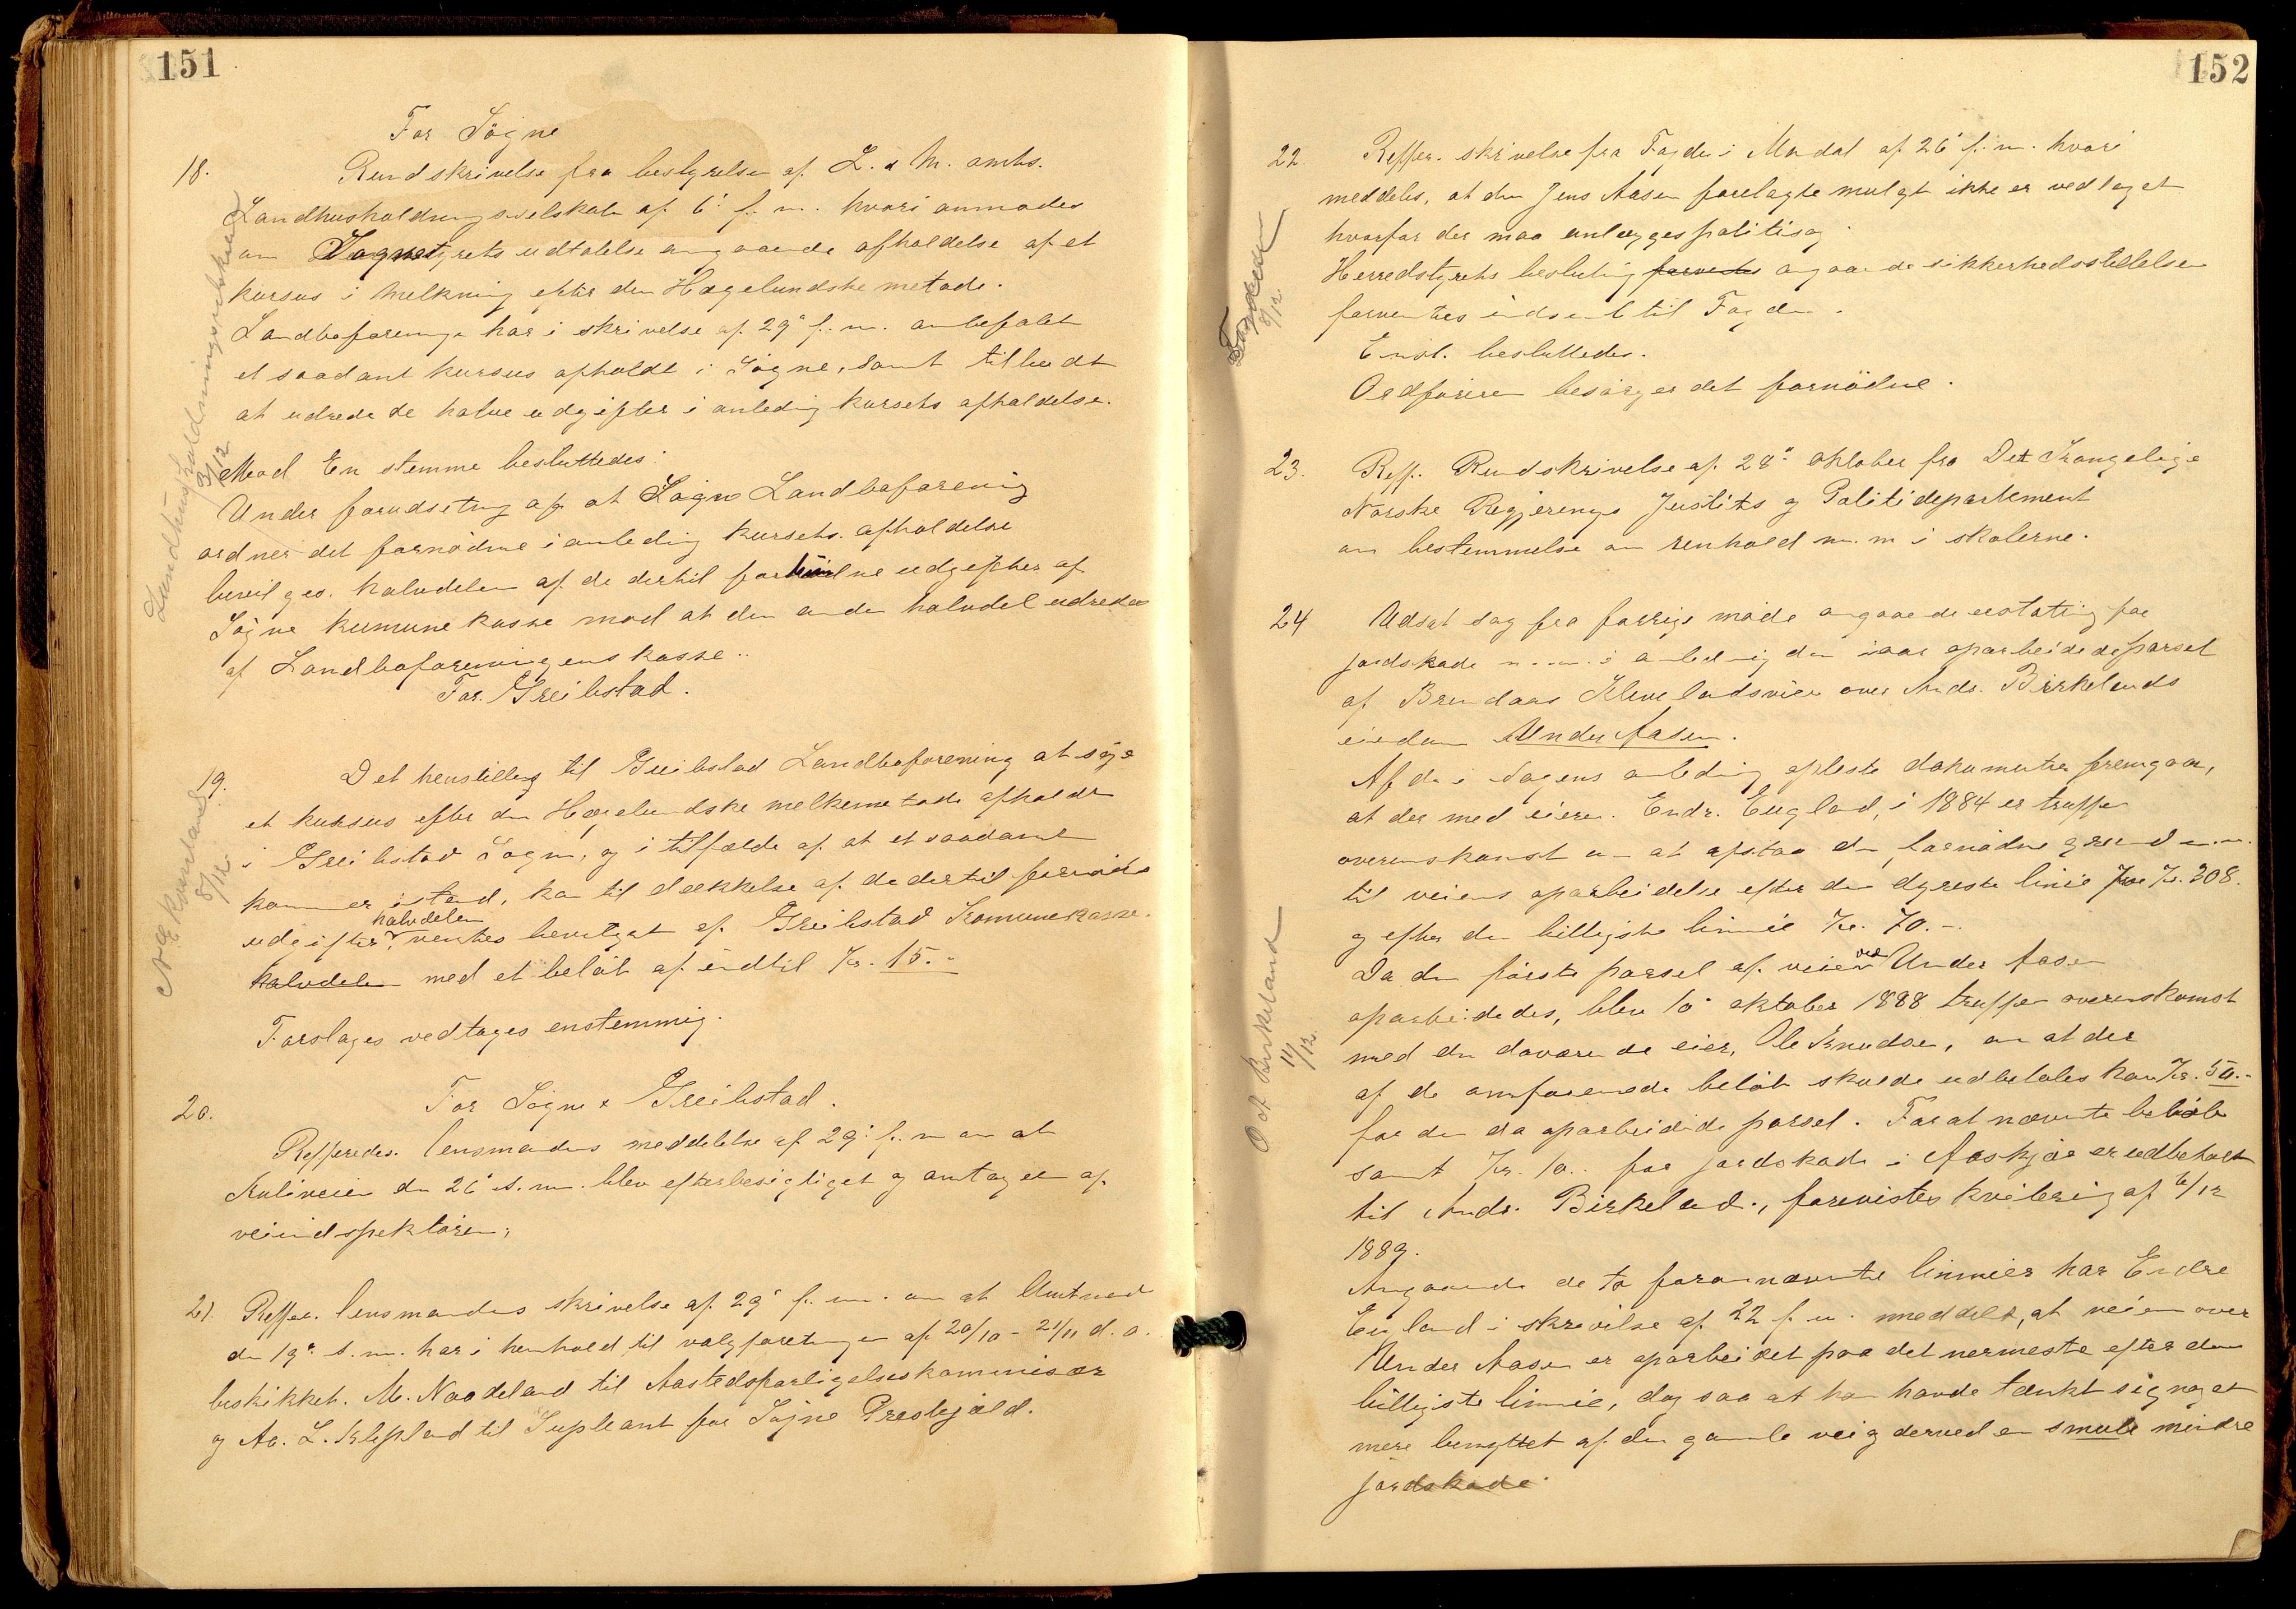 151
For Søgne
18. Rundskrivelse fra bestyrelsen af L. & M. amts.
Landhusholdningsselskab af 6' f. m. hvori anmodes
om Sognestyrets udtalelse angaaende afholdelse af et
kursus i melkning efter den Hegelundske metode.
Landboforeninge har i skrivelse af 29' f. m. anbefalet
et saadant kursus afholdt i Søgne, samt tilbudt
at udrede de halve udgifter i anledig kursets afholdelse.
Mod En stemme besluttedes:
Under forudsetnig af at Søgne Landboforenig
ordner det fornødne i anledig kursets afholdelse
bevilges halvdelen af de dertil udgifter af
Søgne kumunekasse mod at den anden halvdel udredes
af Landboforeningens kasse..
Landhusholdningsselskabet
8/12
For Greibstad.
19. Det henstilles til Greibstad Landboforening at søge
et kursus efter den Hægelundske melkemetode afholdt
i Greibstad Sogn, og i tilfælde af at et saadant
kommer istand, kan til dækkelse af de dertil fornødne
halvdelen
udgifter ventes bevilget af Greibstad Komunekasse.
halvdelen med et beløb af indtil Kr. 15.-
Forslages vedtages enstemmig.
8/12.
20. For Søgne & Greibstad.
Refferedes lensmandens meddelelse af 29' f. m om at
veien den 26' s. m. blev efterbesigtiget og antagen af
veiindspektøren,
21. Reffer. lensmandens skrivelse af 29' f. m. om at Amtmand
den 19' s. m. har i henhold til valgforretninger af 20/10 - 21/11 d. a.
beskikket. M. Naodeland til Aastedsforligelseskommisær
og Aa. L. Klepland til Supleant for Søgne Prestegjæld.
152
22. Reffer. skrivelse fra Fogden i Mandal af 26' f. m. hvori
meddeles, at den Jens Aasen forelagte mulgt ikke er vedtaget
hvorfor der maa anlægges politisag.
Herredstyrets beslutnig forventes angaaende sikkerhedsstillelsen
forventes indsendt til Fogden.
Enst. besluttedes.
Ordføreren besørger det fornødne.
Fogden
8/12.
23. Reff. Rundskrivelse af 28' oktober fra Det Kongelige
Norske Regjerings Justits og Politidepartement
om bestemmelse om renhold m. m i skolerne.
24 Udsat sag fra forrige møde angaaende erstatnig for
jordskade m. m. i anledning den iaar oparbeidede parsel
af Brendaas Klevelandsveien over Ands. Birkelands
eiedom Under Aasen.
Af de i sagens anledning oplæste dokumenter fremgaar,
at der med eieren. Endr. Eugland, i 1884 er truffen
overenskomst om at afstaa den fornødne grund m. m.
til veiens oparbeidelse efter den dyreste linie for Kr. 308.
og efter den billigste linnie Kr. 70.-
Da den første parsel af veien ved Under Aasen
oparbeidedes, blev 10' oktober 1888 truffen overenskomst
med den daværende eier, Ole Knudsen, om at der
af de omforenede beløb skulde udbetales ham Kr. 50.-
for den da oparbeidede parsel. For at nævnte beløb
samt Kr. 10.- for jordskade i er udbetalt
til Ands. Birkeland., forevistes kvitering af 6/12
1889.
Angaaende de to forannævnte linnier har Endre
Eugland i skrivelse af 22 f. m. meddelt, at veien over
Under Aasen er oparbeidet paa det nermeste efter den
billigste linnie, dog saa at han havde tænkt sig noget
mere benyttet af den gamle vei og derved en smule mindre
jordskade.
O af Birkeland
11/12.